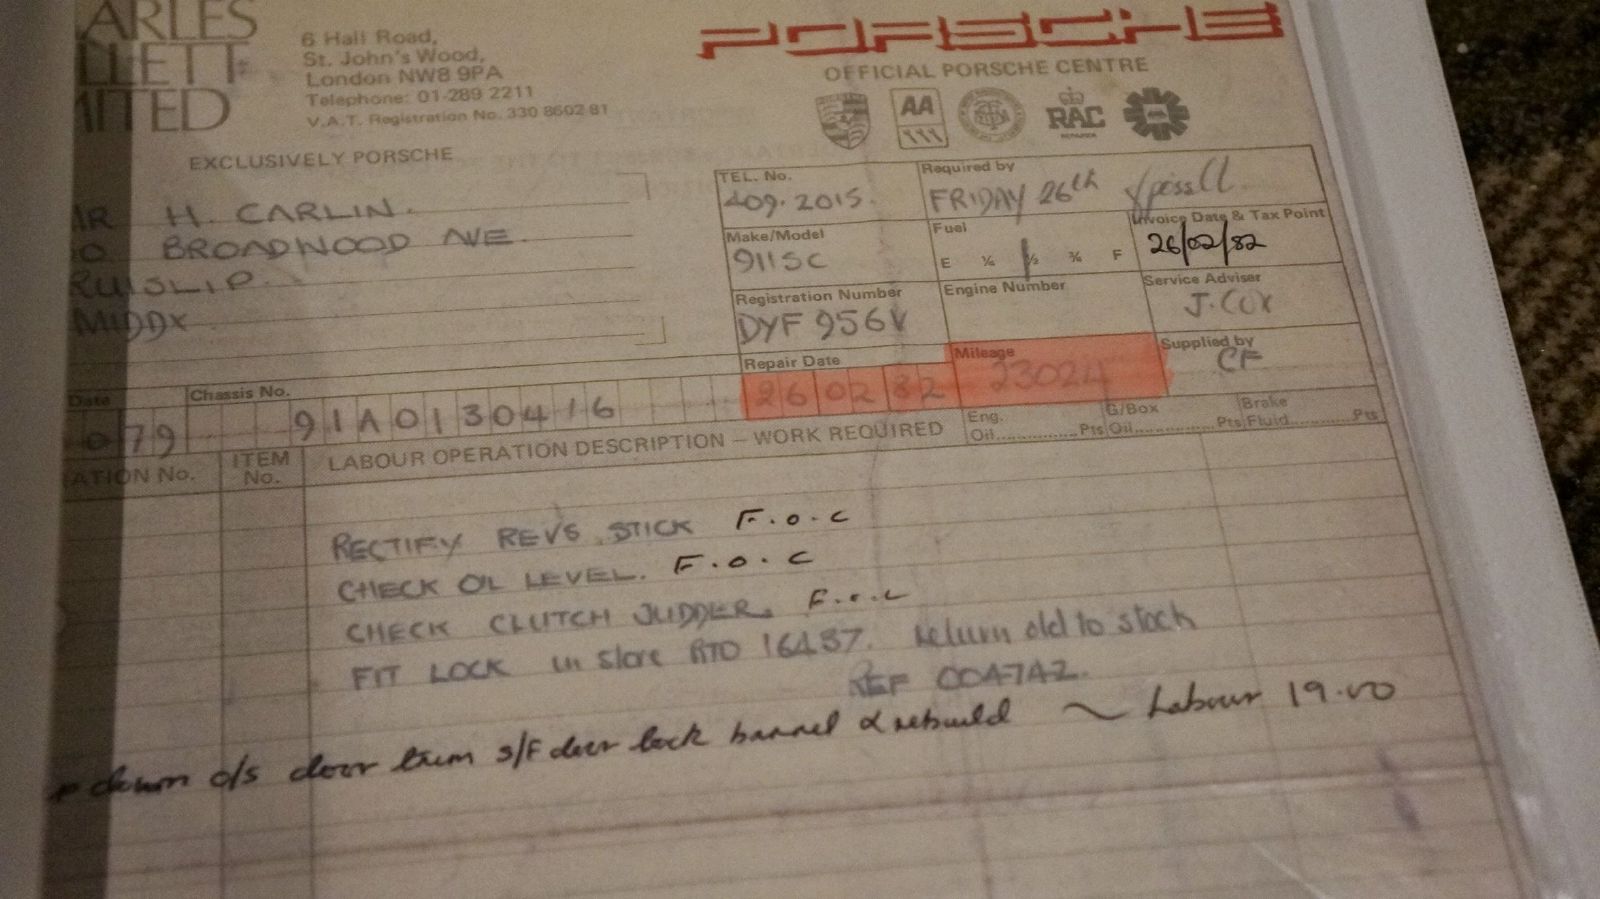 ARLES
LLETT
MITED
6 Hall Road,
St. John's Wood,
London NW8 9PA
Telephone: 01-289 2211
V.A.T. Registration No. 330 8602 81
EXCLUSIVELY PORSCHE
PORSCHE
OFFICIAL PORSCHE CENTRE
AA
RAC
MR H. CARLIN.
BROADWOOD AVE.
RUISLIP.
MIDDX
TEL. No.
409.2015.
Required by
FRIDAY 26th
Make/Model
911SC
Fuel
E ¼ ½ ¾ F
Invoice Date & Tax Point
26/02/82
Registration Number
DYF 956V
Engine Number
Service Adviser
J. COX
Repair Date
260282
Mileage
23024
Supplied by
CF
Date
079
Chassis No.
91A0130416
Eng. Oil..............Pts
G/Box Oil..............Pts
Brake Fluid..............Pts
ATION No.
ITEM No.
LABOUR OPERATION DESCRIPTION – WORK REQUIRED
RECTIFY REVS STICK F.O.C
CHECK OIL LEVEL. F.O.C
CHECK CLUTCH JUDDER. F.O.C
FIT LOCK in store RTO 16487. Return old to stock
REF 00A7A2.
down o/s door trim s/F door lock barrel & rebuild ~ Labour 19.00